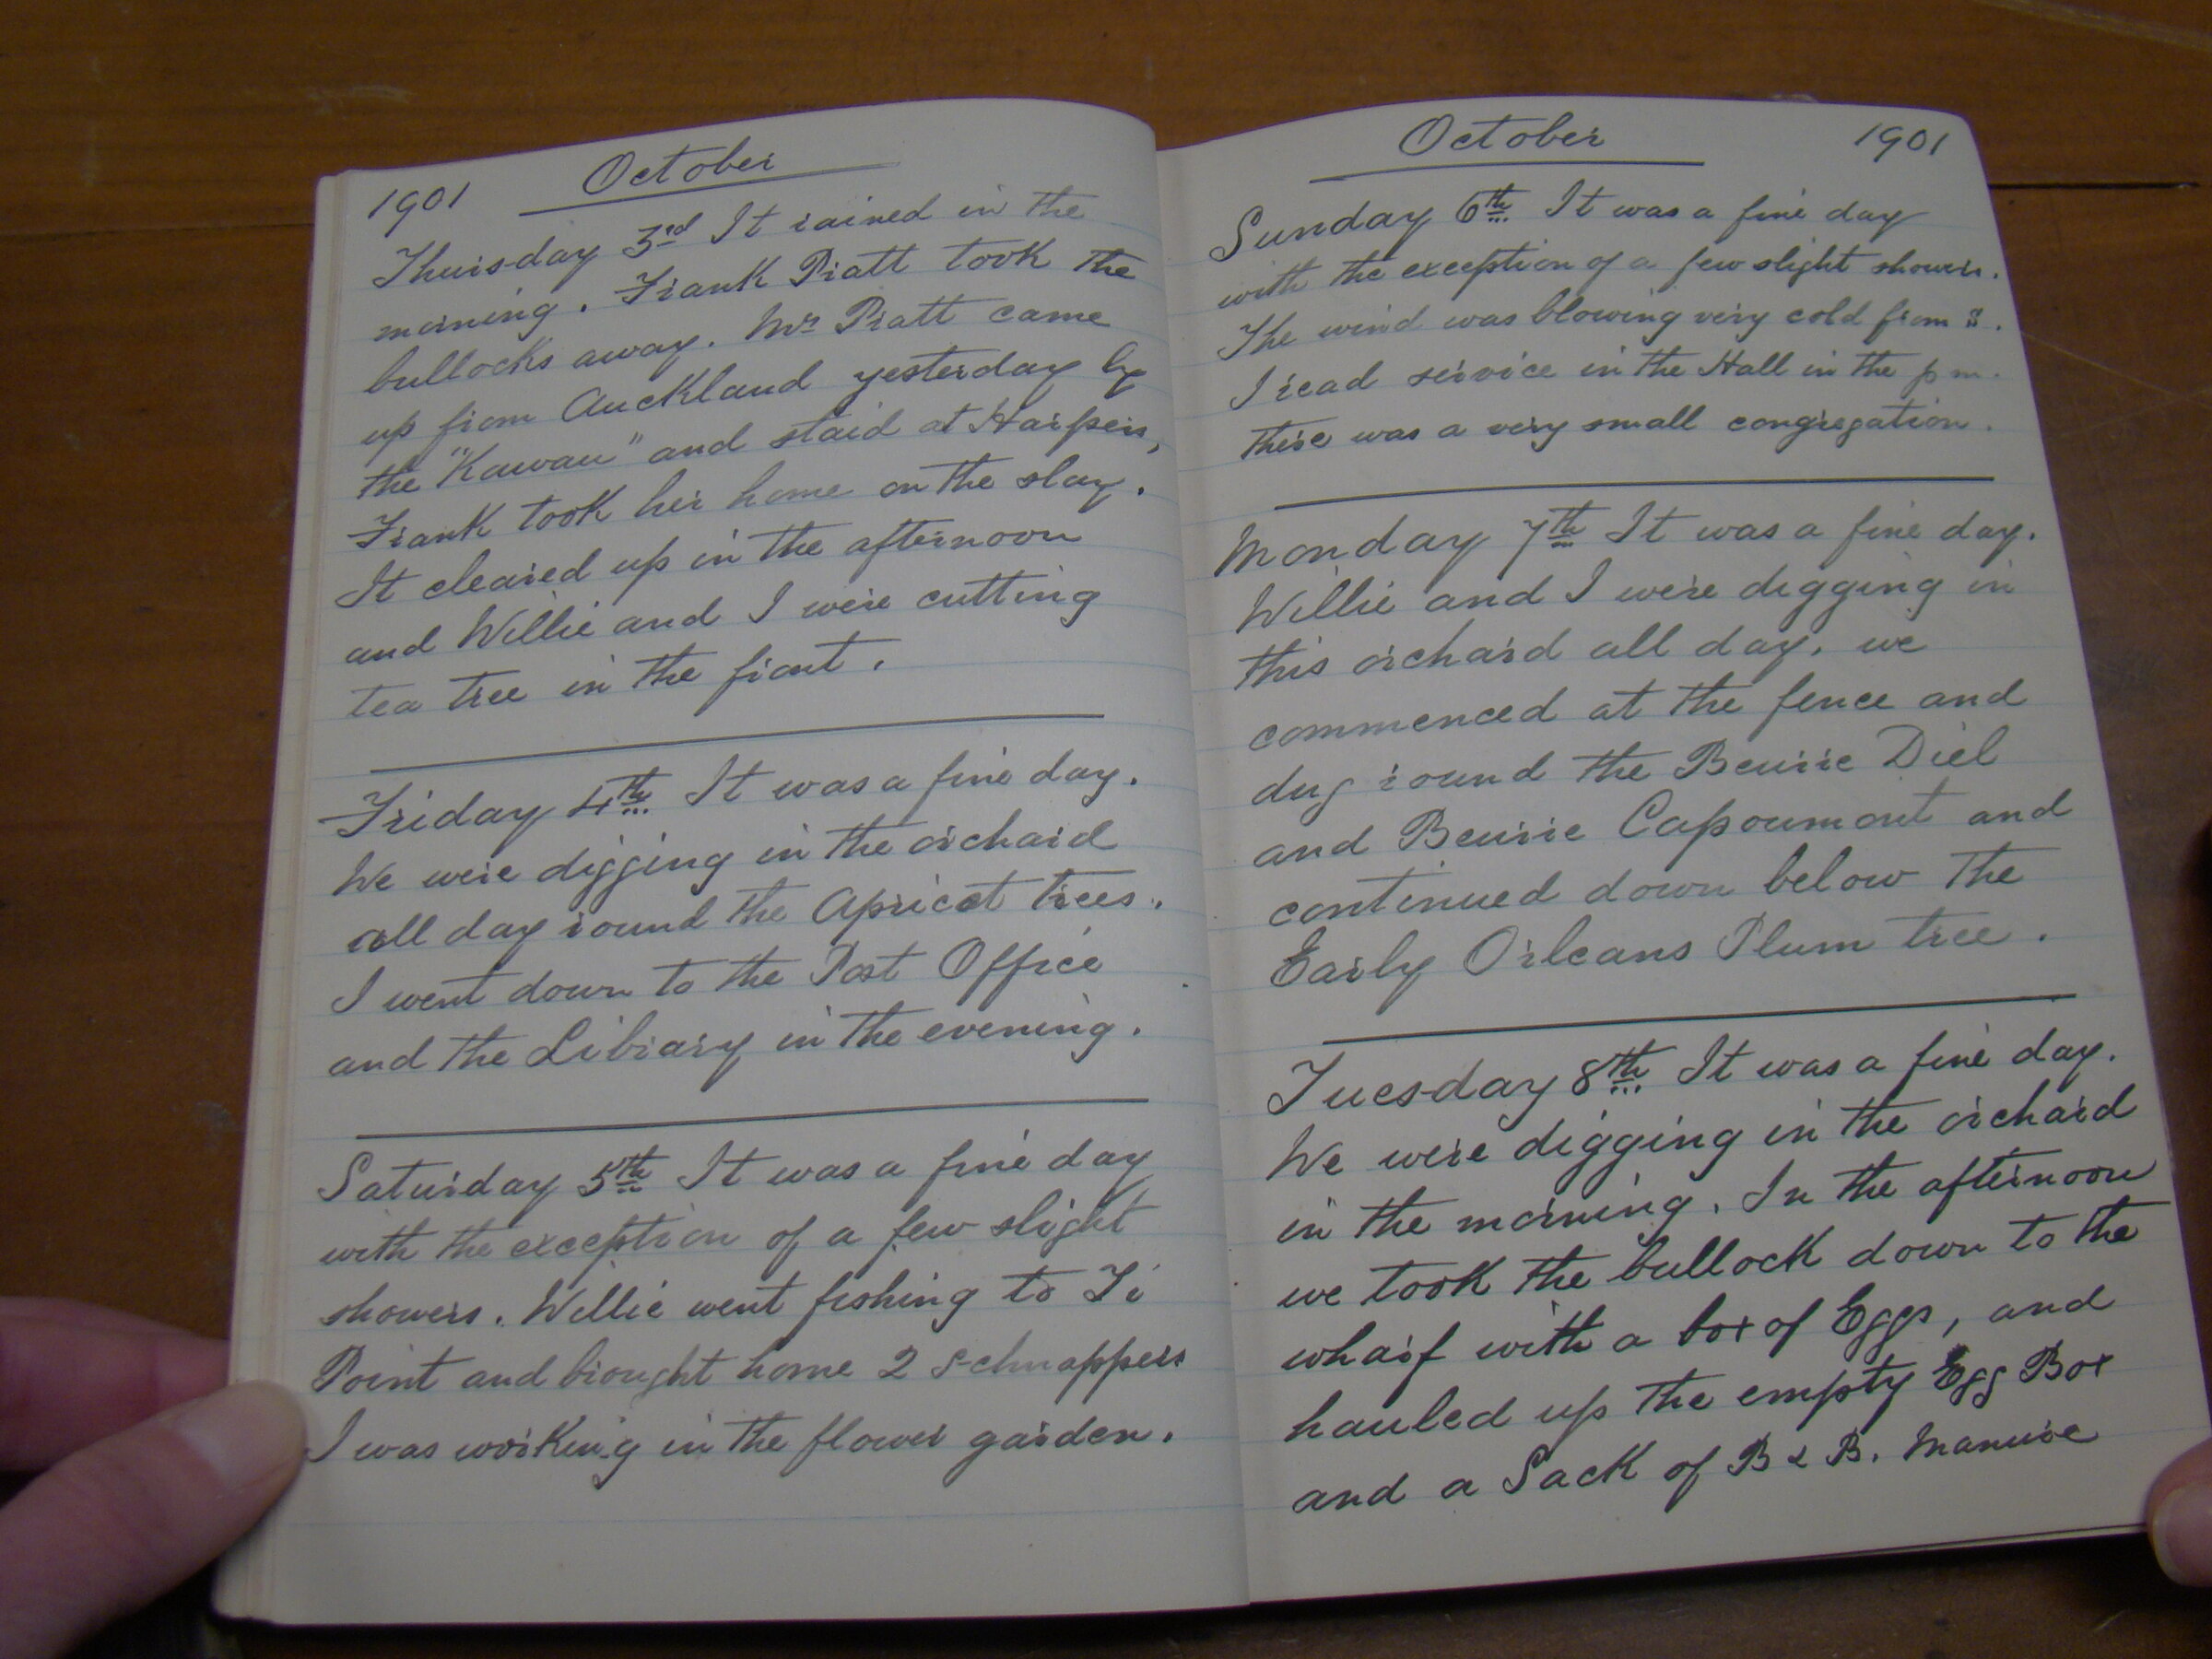 1901 October
Thursday 3rd It rained in the
morning. Frank Pratt took the
bullocks away. Mrs Pratt came
up from Auckland yesterday by
the "Kawau" and staid at Harpers,
Frank took her home on the slay.
It cleared up in the afternoon
and Willie and I were cutting
tea tree in the front.
Friday 4th It was a fine day.
We were digging in the orchard
all day round the Apricot trees.
I went down to the Post Office
and the Library in the evening.
Saturday 5th It was a fine day
with the exception of a few slight
showers. Willie went fishing to Ti
Point and brought home 2 Schnappers
I was working in the flower garden.
October 1901
Sunday 6th It was a fine day
with the exception of a few slight showers.
The wind was blowing very cold from S.
I read service in the Hall in the pm.
there was a very small congregation.
Monday 7th It was a fine day.
Willie and I were digging in
this orchard all day. we
commenced at the fence and
dug round the Beurre Diel
and Beurre Capoumont and
continued down below the
Early Orleans Plum tree.
Tuesday 8th It was a fine day.
We were digging in the orchard
in the morning. In the afternoon
we took the bullock down to the
wharf with a box of Eggs, and
hauled up the empty Egg Box
and a Sack of B & B. Manure